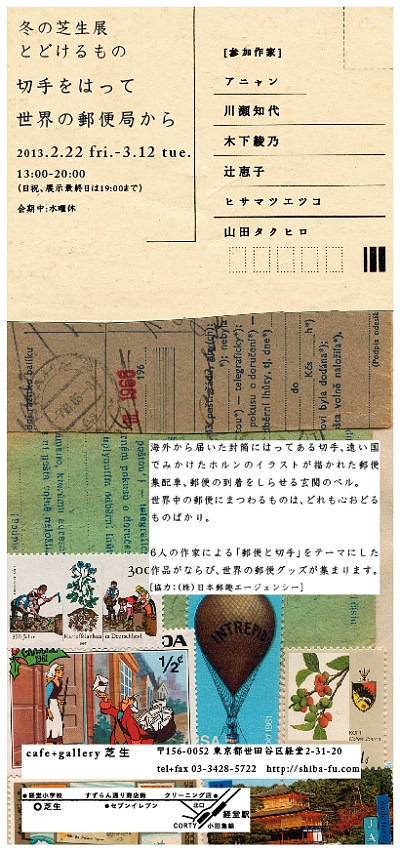 冬の芝生展
とどけるもの
切手をはって
世界の郵便局から
2013.2.22 fri.-3.12 tue.
13:00-20:00
(日祝、展示最終日は19:00まで)
会期中:水曜休
[参加作家]
アニャン
川瀬知代
木下綾乃
辻恵子
ヒサマツエツコ
山田タクヒロ
海外から届いた封筒にはってある切手、遠い国
でみかけたホルンのイラストが描かれた郵便
集配車、郵便の到着をしらせる玄関のベル。
世界中の郵便にまつわるものは、どれも心おどる
ものばかり。
6人の作家による「郵便と切手」をテーマにした
作品がならび、世界の郵便グッズが集まります。
[協力:(株)日本郵趣エージェンシー]
300
350 Jahre Kartoffelanbau in Deutschland
1981
1/2¢
INTREPID
USA
cafe+gallery 芝生
〒156-0052 東京都世田谷区経堂2-31-20
tel+fax 03-3428-5722 http://shiba-fu.com
経堂小学校 すずらん通り商店街 クリーニング店
芝生 セブンイレブン 北口
経堂駅
CORTY 小田急線